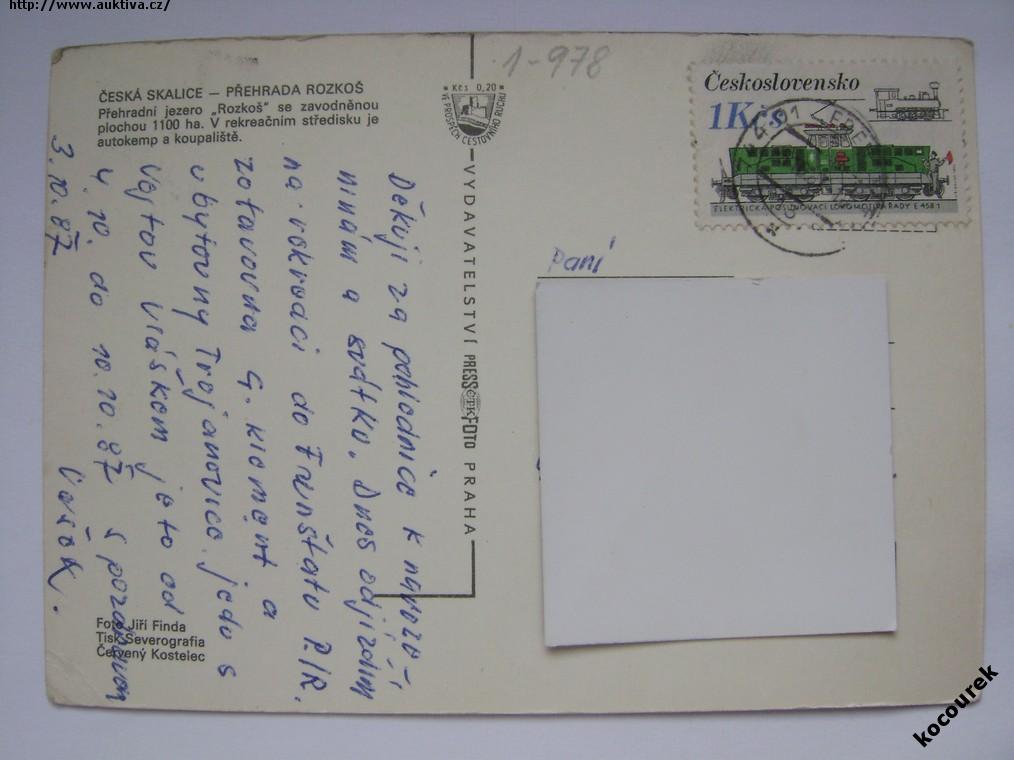 http://www.auktiva.cz/
1-978
ČESKÁ SKALICE — PŘEHRADA ROZKOŠ
Přehradní jezero „Rozkoš" se zavodněnou
plochou 1100 ha. V rekreačním středisku je
autokemp a koupaliště.
Kčs 0,20
VE PROSPĚCH CESTOVNÍHO RUCHU
Československo
1Kčs
ELEKTRICKÁ POSUNOVACÍ LOKOMOTIVA ŘADY E 458.1
VYDAVATELSTVÍ PRESSFOTO PRAHA
ČTK
Paní
Děkuji za pohlednice k naroze-
ninám a svátku. Dnes odjíždím
na rekreaci do Frenštátu P./R.
zotavovna G. Kliment a
ubytovny Trojanovice. jedu s
Vláškem je to od
4.10. do 10.10.87 s pozdravem
3.10.87 Vašek.
Foto Jiří Finda
Tisk Severografia
Červený Kostelec
kocourek